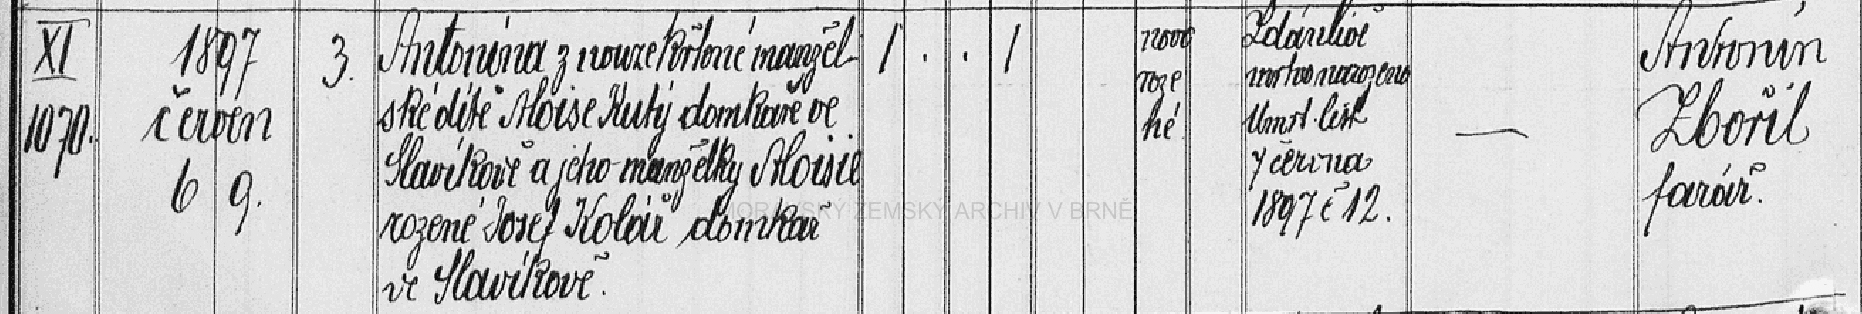 XI
1070.
1897
červen
6 9.
3.
Antonína z nouze křtěné manžel-
ské dítě Aloise Kutý domkaře ve
Slavíkově a jeho manželky Aloisie
rozené Josef Kolář domkař
ve Slavíkově.
1 . . 1
novo
roze
né
Zdánlivě
mrtvo narozeno
Umrt. list
7 června
1897 č 12.
—
Antonín
Zbořil
farář.
MORAVSKÝ ZEMSKÝ ARCHIV V BRNĚ